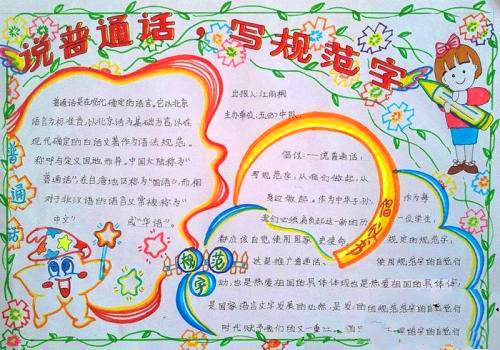 说普通话，写规范字
普通话
普通话是在现代确定的语言。它以北京
语言为标准音，以北京话为基础方言，以在
现代确定的白话文著作为语法规范。
称呼为定义因地而异。中国大陆称为"
普通话"，在台湾地区称为"国语"，而相
对于非汉语的语言又常被称为"
中文" 或"华语"。
出报人：江雨桐
主办单位：五(4)中队
倡议
倡议：一说普通话，
写规范字，从我们做起，从
身边做起。作为中华子孙，
我们必须肩负起这一新的历
作为每
一位学生，
都应该自觉使用国家 规定的规范字，
这是推广普通话、 使用规范字的自觉行
动，也是热爱祖国的具体体现也是热爱祖国的具体体
是国家语言文字发展的必然，是
规范字的自觉行
时代赋予我们的又一重
规范字